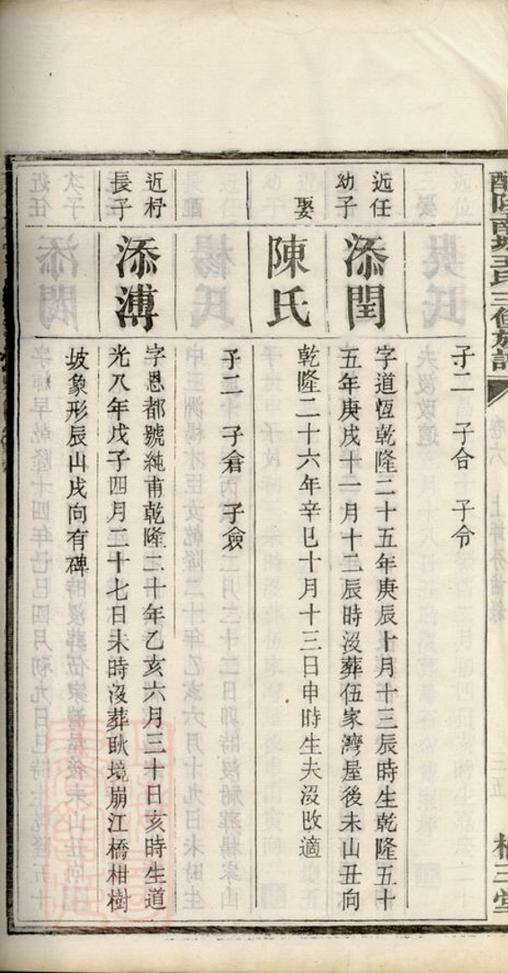 醴陵南城王氏三修族譜
子二 子合 子令
近任
幼子
添閏
字道恆乾隆二十五年庚辰十月十三辰時生乾隆五十
五年庚戌十二月十二辰時沒葬伍家灣屋後未山丑向
娶
陳氏
乾隆二十六年辛巳十月十三日申時生夫沒改適
子二 子倉 子僉
近杍
長子
添溥
字恩都號純甫乾隆二十年乙亥六月三十日亥時生道
光八年戊子四月二十七日未時沒葬耿境崩江橋柑樹
坡象形辰山戌向有碑